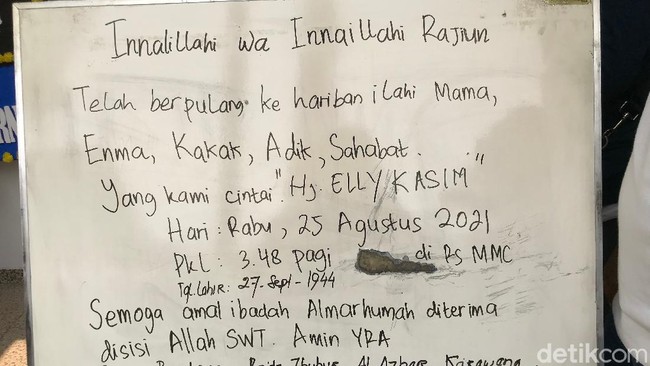 Innalillahi wa Innaillahi Rajiun
Telah berpulang ke hariban ilahi Mama,
Enma, Kakak, Adik, Sahabat.
Yang kami cintai "Hj. ELLY KASIM"
Hari : Rabu, 25 Agustus 2021
Pkl : 3.48 pagi di RS MMC
Tgl. Lahir : 27-Sept-1944
Semoga amal ibadah Almarhumah diterima
disisi Allah SWT. Amin YRA
Al Azhar Karawang
detikcom